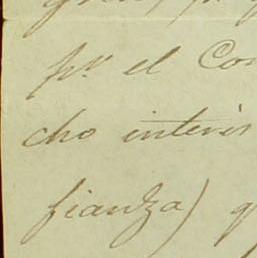 pr. el Con
cho interin
fianza) q